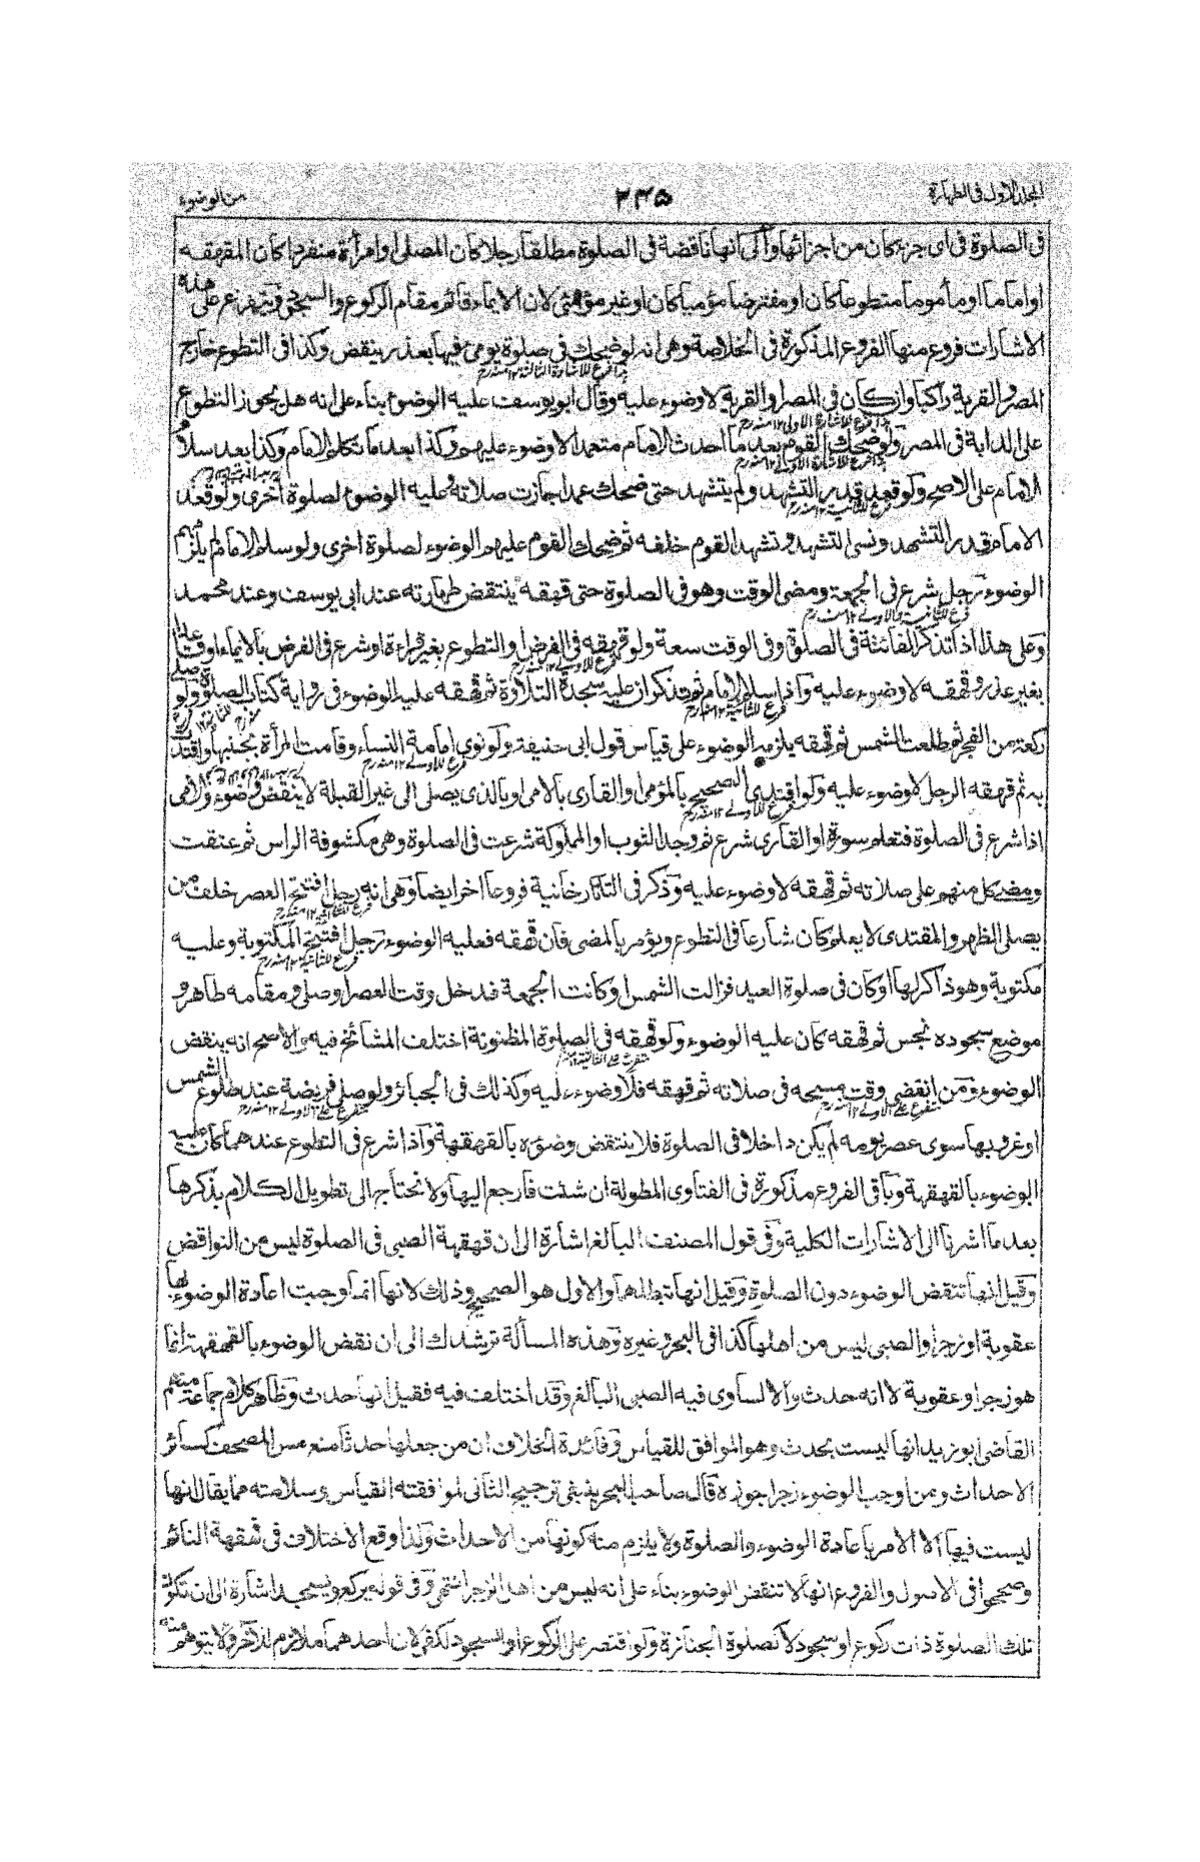 المجلد الاول فى الطهارة
٢٣٥
من الوضوء
فى الصلوة فى اى جزء كان من اجزائها والى انها ناقضة فى الصلوة مطلقا رجلا كان المصلى او امرأة منفردا كان المقهقه
او اماما او مأموما متطوعا كان او مفترضا مؤميا كان او غير مؤمئ لان الايماء قائم مقام الركوع والسجود ويتفرع على هذه
الاشارات فروع منها الفروع المذكورة فى الخلاصة وهى انه لو ضحك فى صلوة يومى فيها بعذر ينقض وكذا فى التطوع خارج
هذا فرع للاشارة الثالثة ١٢ منه رح
المصر والقرية راكبا وان كان فى المصر او القرية لا وضوء عليه وقال ابو يوسف عليه الوضوء بناء على انه هل يجوز التطوع
هذا فرع للاشارة الاولى ١٢ منه رح
على الدابة فى المصر ولو ضحك القوم بعد ما احدث الامام متعمدا لا وضوء عليهم وكذا بعد ما تكلم الامام وكذا بعد سلام
هذا فرع للاشارة الاولى ١٢ منه رح
الامام على الاصح ولو قعد قدر التشهد ولم يتشهد حتى ضحك عمدا جازت صلاته وعليه الوضوء لصلوة اخرى ولو قعد
فرع للثانية ١٢ منه رح
الامام قدر التشهد ونسى التشهد وتشهد القوم خلفه ثم ضحك القوم عليهم الوضوء لصلوة اخرى ولو سلم الامام لم يلزمهم
الوضوء رجل شرع فى الجمعة ومضى الوقت وهو فى الصلوة حتى قهقه ينتقض طهارته عند ابى يوسف وعند محمد
فرع للثانية والاولى ١٢ منه رح
وعلى هذا اذا تذكر الفائتة فى الصلوة وفى الوقت سعة ولو قهقه فى الفرض او التطوع بغير قراءة او شرع فى الفرض بالايماء
فرع للاولى ١٢ منه رح
بغير عذر وقهقه لا وضوء عليه واذا سلم الامام ثم تذكر ان عليه سجدة التلاوة ثم قهقه عليه الوضوء فى رواية كتاب الصلوة ولو صلى
فرع للثانية ١٢ منه رح
ركعة من الفجر ثم طلعت الشمس ثم قهقه يلزمه الوضوء على قياس قول ابى حنيفة ولو نوى امامة النساء وقامت المرأة بجنبها واقتدت
فرع للاولى ١٢ منه رح
به ثم قهقه الرجل لا وضوء عليه ولو اقتدى الصحيح بالمؤمى او القارى بالامى او بالذى يصلى الى غير القبلة لا ينقض وضوءه والامى
فرع للاولى ١٢ منه رح
اذا شرع فى الصلوة فتعلم سورة او القارى شرع ثم وجد الثوب او المملوكة شرعت فى الصلوة وهى مكشوفة الراس ثم عتقت
ومضى كل منهم على صلاته ثم قهقه لا وضوء عليه وذكر فى التاتارخانية فروعا اخر ايضا وهى انه رجل افتتح العصر خلف من
يصلى الظهر والمقتدى لا يعلم كان شارعا فى التطوع ويؤمر بالمضى فان قهقه فعليه الوضوء رجل افتتح المكتوبة وعليه
فرع للثانية ١٢ منه رح
مكتوبة وهو ذاكر لها او كان فى صلوة العيد فزالت الشمس او كانت الجمعة فدخل وقت العصر او صلى ومقامه طاهر و
موضع سجوده نجس ثم قهقه كان عليه الوضوء ولو قهقه فى الصلوة المظنونة اختلف المشائخ فيه والاصح انه ينقض
متفرع على الثانية ١٢ منه
الوضوء ومن انقضى وقت مسحه فى صلاته ثم قهقه فلا وضوء عليه وكذلك فى الجبائر ولو صلى فريضة عند طلوع الشمس
متفرع على الاولى ١٢ منه رح
متفرع على الاولى ١٢ منه رح
او غروبها سوى عصر يومه لم يكن داخلا فى الصلوة فلا ينتقض وضوءه بالقهقهة واذا شرع فى التطوع عندهما كان عليه
الوضوء بالقهقهة وباقى الفروع مذكورة فى الفتاوى المطولة ان شئت فارجع اليها ولا نحتاج الى تطويل الكلام بذكرها
بعد ما اشرنا الى الاشارات الكلية وفى قول المصنف البالغ اشارة الى ان قهقهة الصبى فى الصلوة ليس من النواقض
وقيل انها تنقض الوضوء دون الصلوة وقيل انها تبطلهما والاول هو الصحيح وذلك لانها انما اوجبت اعادة الوضوء بها
عقوبة او زجرا والصبى ليس من اهلها كذا فى البحر وغيره وهذه المسألة ترشدك الى ان نقض الوضوء بالقهقهة انما
هو زجر او عقوبة لا انه حدث والا لساوى فيه الصبى البالغ وقد اختلف فيه فقيل انها حدث وظاهر كلام جماعة منهم
القاضى ابو زيد انها ليست بحدث وهو الموافق للقياس وفائدة الخلاف ان من جعلها حدثا منع مس المصحف كسائر
الاحداث ومن اوجب الوضوء زجرا جوزه قال صاحب البحر ينبغى ترجيح الثانى لموافقته القياس وسلامته مما يقال انها
ليست فيها الا الامر باعادة الوضوء والصلوة ولا يلزم منه كونها من الاحداث ولذا وقع الاختلاف فى قهقهة النائم
وصححوا فى الاصول والفروع انها لا تنقض الوضوء بناء على انه ليس من اهل الزجر انتهى وفى قوله يركع ويسجد اشارة الى ان تكون
تلك الصلوة ذات ركوع او سجود لا كصلوة الجنازة ولو اقتصر على الركوع او السجود لكفى لان احدهما ملازم للآخر ولا يتوهم منه